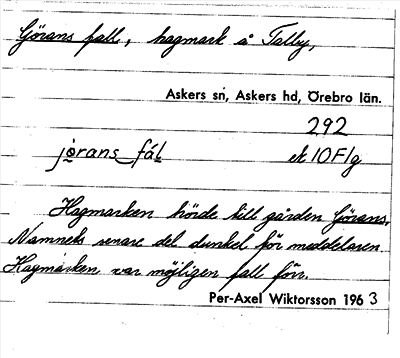 Görans fall, hagmark å Talby,
Askers sn, Askers hd, Örebro län.
292
jörans fál ek 10F1g
Hagmarken hörde till gården Görans.
Namnets senare del dunkel för meddelaren.
Hagmarken var möjligen fall förr.
Per-Axel Wiktorsson 1963